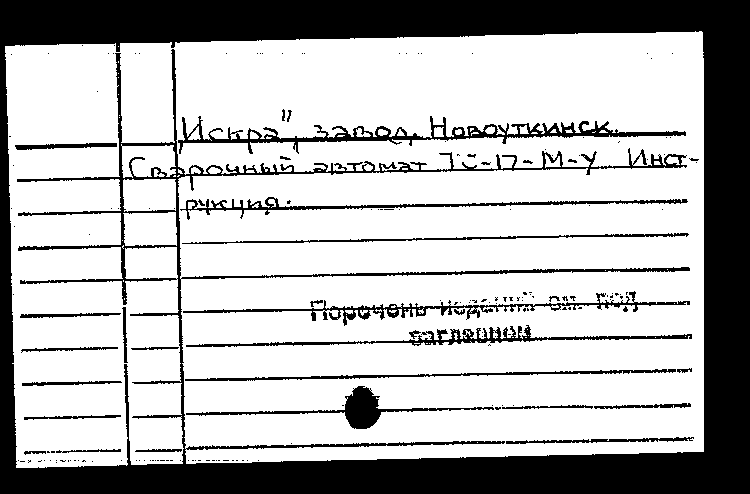 „Искра", завод. Новоуткинск.
Сварочный автомат ТС-17-М-У Инст-
рукция.
Перечень изданий см. под
заглавием